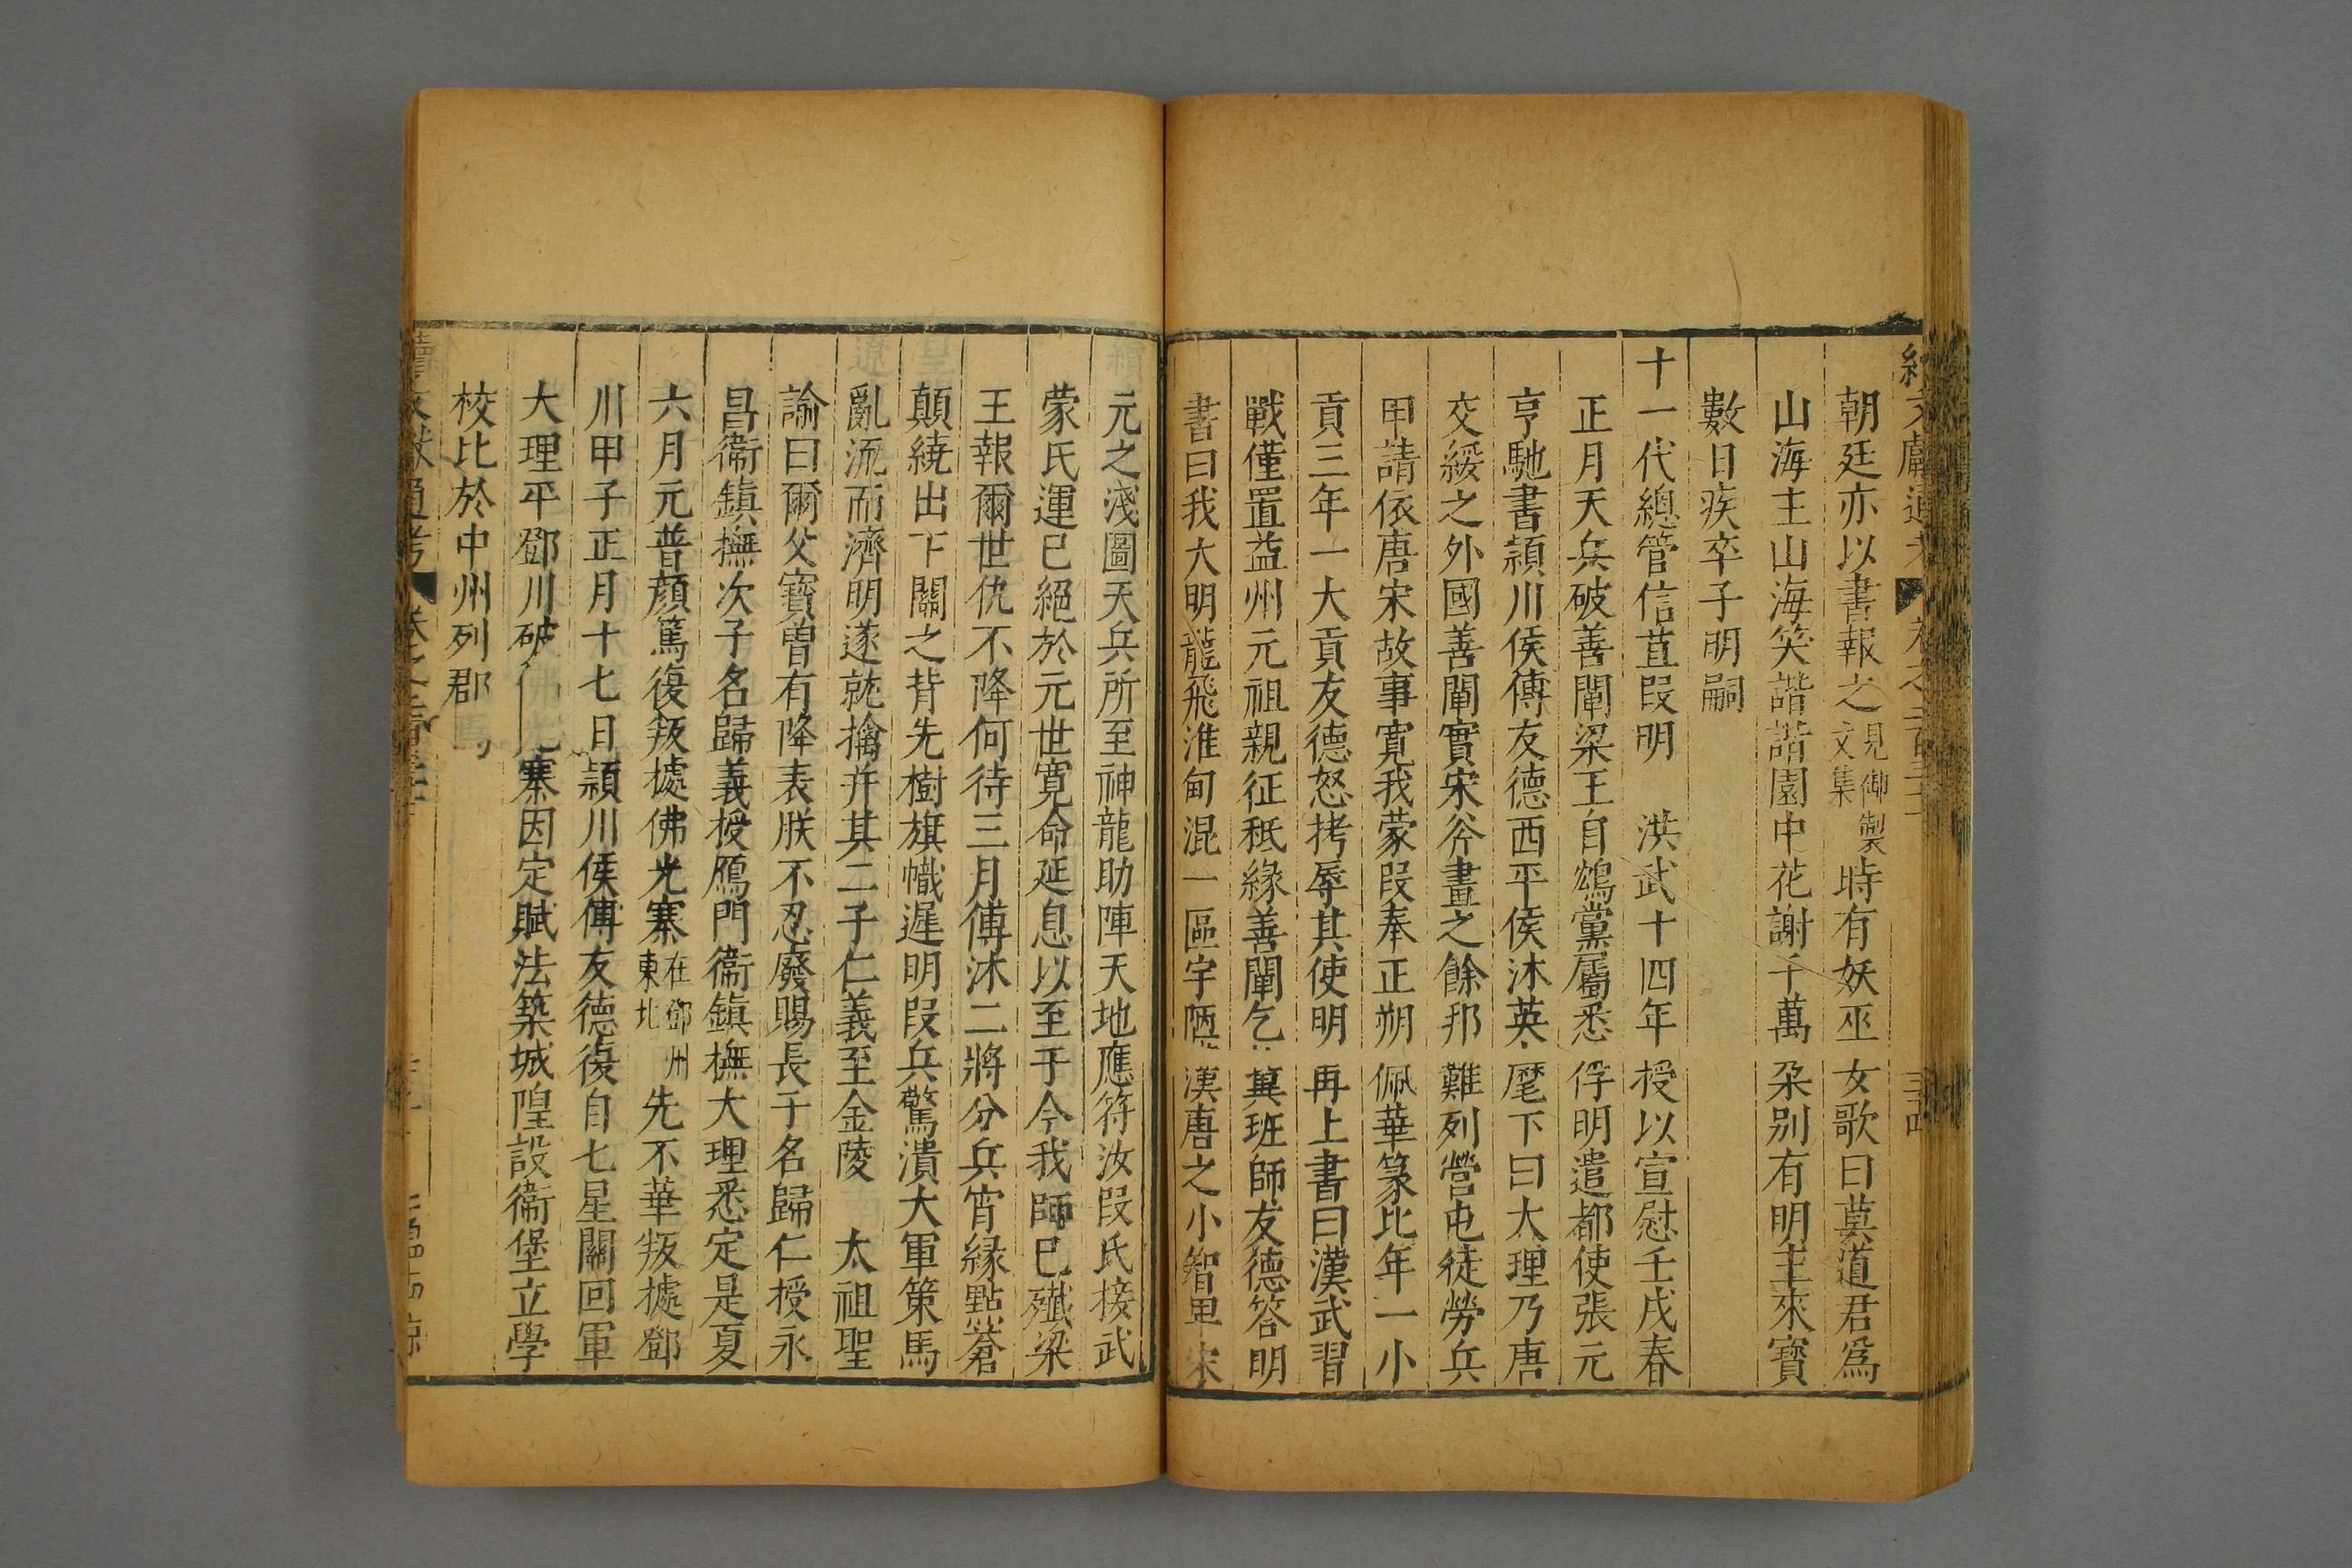 朝廷亦以書報之見御製文集時有妖巫女歌曰莫道君為
山海主山海笑諧諧園中花謝千萬朶別有明主來寶
數日疾卒子明嗣
十一代總管信苴段明 洪武十四年授以宣慰壬戌春
正月天兵破善闡梁王自鴆黨屬悉俘明遣都使張元
亨馳書潁川侯傅友德西平侯沐英麾下曰大理乃唐
交綏之外國善闡實宋斧畫之餘邦難列營屯徒勞兵
甲請依唐宋故事寬我蒙段奉正朔佩華篆比年一小
貢三年一大貢友德怒拷辱其使明再上書曰漢武習
戰僅置益州元祖親征秪緣善闡乞班師友德答明
書曰我大明龍飛淮甸混一區宇陋漢唐之小智卑宋
元之淺圖天兵所至神龍助陣天地應符汝段氏接武
蒙氏運已絕於元世寛命延息以至于今我師已殲梁
王報爾世仇不降何待三月傅沐二將分兵宵緣點蒼
顛繞出下關之背先樹旗幟遲明段兵驚潰大軍策馬
亂流而濟明遂就擒并其二子仁義至金陵 太祖聖
諭曰爾父寶曽有降表朕不忍廢賜長子名歸仁授永
昌衞鎮撫次子名歸義授鴈門衞鎮撫大理悉定是夏
六月元普顔篤復叛據佛光寨在鄧州東北先不華叛據鄧
川甲子正月十七日潁川侯傅友德復自七星關回軍
大理平鄧川破寨因定賦法築城隍設衞堡立學
校比於中州列郡